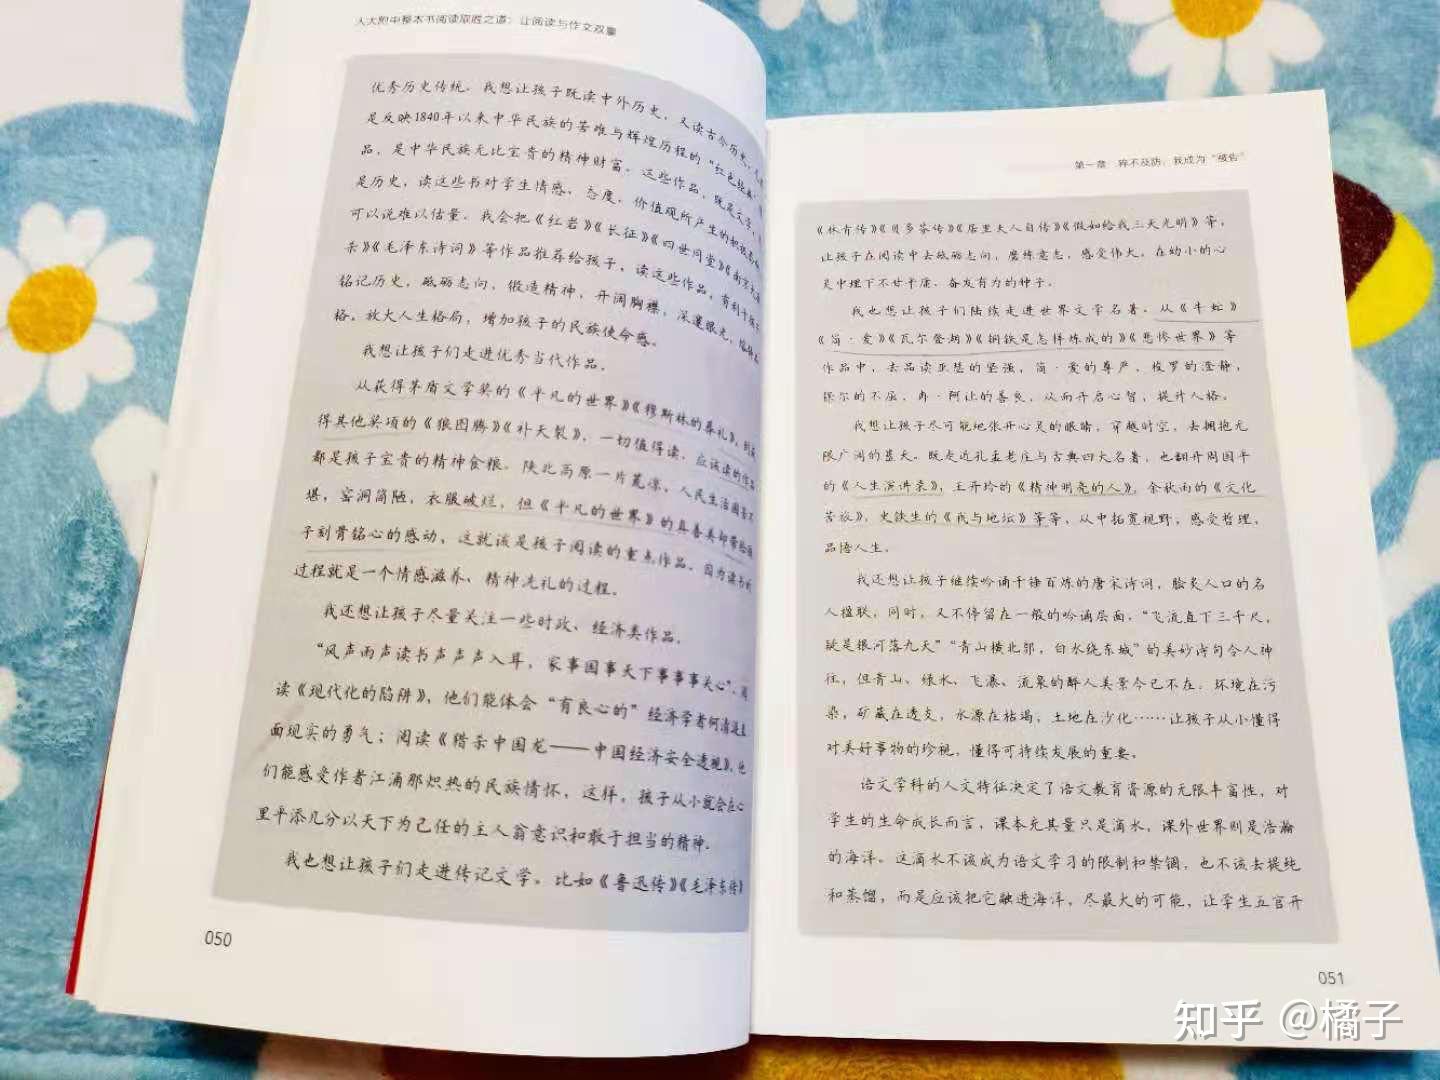 人大附中整本书阅读取胜之道：让阅读与作文双赢
优秀历史传统。我想让孩子既读中外历史，又读古今历史。
是反映1840年以来中华民族的苦难与辉煌历程的“红色经典
品，是中华民族无比宝贵的精神财富。这些作品，既是文学，
是历史，读这些书对学生情感、态度、价值观所产生的积极
可以说难以估量。我会把《红岩》《长征》《四世同堂》《南京大
杀》《毛泽东诗词》等作品推荐给孩子，读这些作品，有利于孩子
铭记历史，砥砺志向，锻造精神，开阔胸襟，深邃眼光，
格，放大人生格局，增加孩子的民族使命感。
我想让孩子们走进优秀当代作品。
从获得茅盾文学奖的《平凡的世界》《穆斯林的葬礼》，到
得其他奖项的《狼图腾》《补天裂》，一切值得读、应该读的作品
都是孩子宝贵的精神食粮。陕北高原一片荒凉，人民生活困苦不
堪，窑洞简陋，衣服破烂，但《平凡的世界》的真善美却带给孩
子刻骨铭心的感动，这就该是孩子阅读的重点作品。因为读书的
过程就是一个情感滋养、精神洗礼的过程。
我还想让孩子尽量关注一些时政、经济类作品。
“风声雨声读书声声声入耳，家事国事天下事事事关心”，阅
读《现代化的陷阱》，他们能体会“有良心的”经济学者何清涟直
面现实的勇气；阅读《猎杀中国龙——中国经济安全透视》，他
们能感受作者江涌那炽热的民族情怀，这样，孩子从小就会在心
里平添几分以天下为己任的主人翁意识和敢于担当的精神。
我也想让孩子们走进传记文学。比如《鲁迅传》《毛泽东传》
050
第一章 猝不及防，我成为“被告”
《林肯传》《贝多芬传》《居里夫人自传》《假如给我三天光明》等，
让孩子在阅读中去砥砺志向，磨练意志，感受伟大，在幼小的心
灵中埋下不甘平庸、奋发有为的种子。
我也想让孩子们陆续走进世界文学名著。从《牛虻》
《简·爱》《瓦尔登湖》《钢铁是怎样炼成的》《悲惨世界》等
作品中，去品读亚瑟的坚强，简·爱的尊严，梭罗的澄静，
保尔的不屈，冉·阿让的善良，从而开启心智，提升人格。
我想让孩子尽可能地张开心灵的眼睛，穿越时空，去拥抱无
限广阔的蓝天。既走近孔孟老庄与古典四大名著，也翻开周国平
的《人生演讲录》，王开岭的《精神明亮的人》，余秋雨的《文化
苦旅》，史铁生的《我与地坛》等等，从中拓宽视野，感受哲理，
品悟人生。
我还想让孩子继续吟诵千锤百炼的唐宋诗词，脍炙人口的名
人楹联，同时，又不停留在一般的吟诵层面，“飞流直下三千尺，
疑是银河落九天”“青山横北郭，白水绕东城”的美妙诗句令人神
往，但青山、绿水、飞瀑、流泉的醉人美景今已不在：环境在污
染，矿藏在透支，水源在枯竭，土地在沙化……让孩子从小懂得
对美好事物的珍视，懂得可持续发展的重要。
语文学科的人文特征决定了语文教育资源的无限丰富性，对
学生的生命成长而言，课本充其量只是滴水，课外世界则是浩瀚
的海洋。这滴水不该成为语文学习的限制和禁锢，也不该去提纯
和蒸馏，而是应该把它融进海洋，尽最大的可能，让学生五官开
051
知乎 @橘子